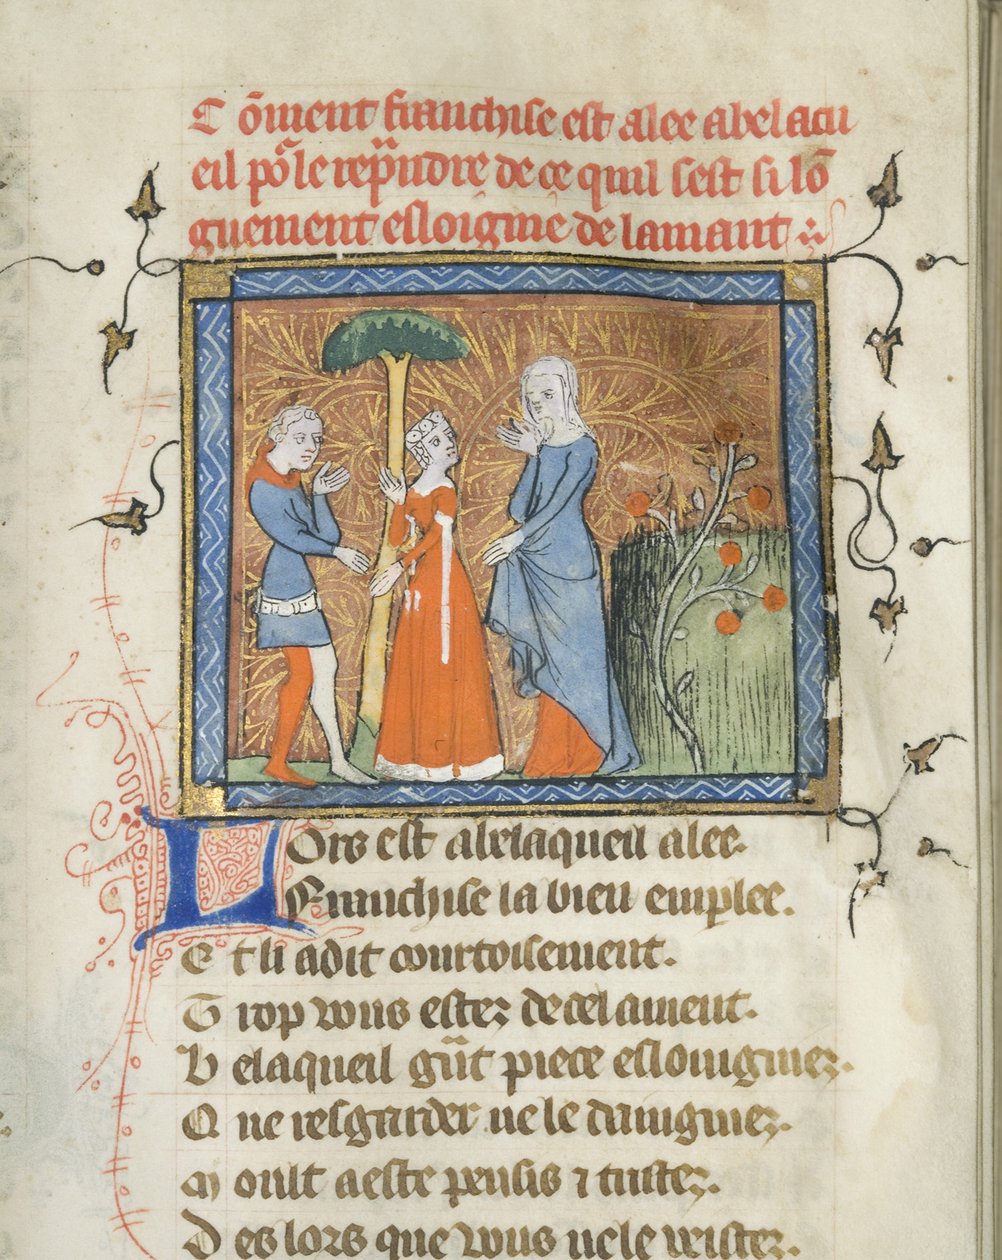 Cōment franchise est alee abelacu
eil po᷑ le rep̄ndre de ce quil sest si lō
guement esloigine de lamant
Lors est abelaqueil alee.
Franchise la bien emplee.
Et li adit courtoisement.
Trop vous estez de cel ament.
Belaqueil g᷑nt piece esloingniez.
Que resgarder ne le daingniez.
Moult a este pensis ⁊ tristez.
Des lors que vous ne le veistez.